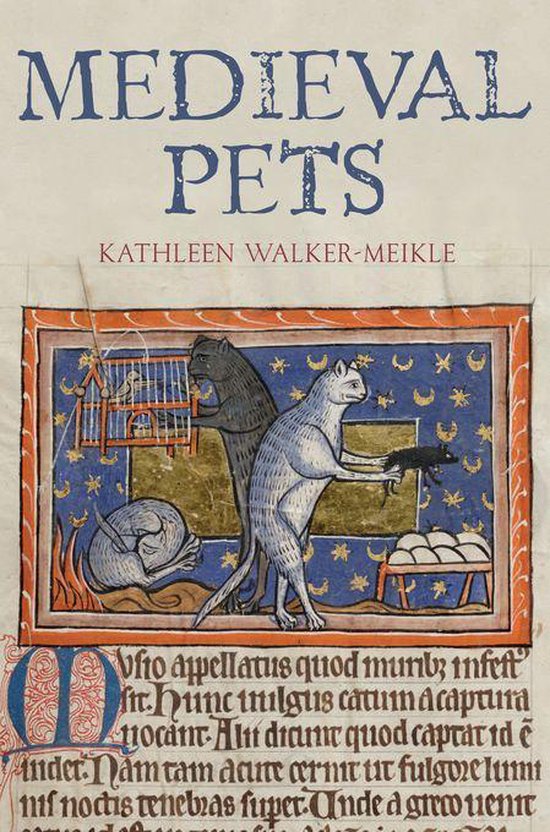 MEDIEVAL
PETS
KATHLEEN WALKER-MEIKLE
Musio appellatus quod muribꝫ infest᷒
sit. Hunc uulgus catum a captura
uocant. Alii dicunt quod captat id ē
uidet. Nam tam acute cernit ut fulgore lumi
nis noctis tenebras superet. Unde a greco uenit